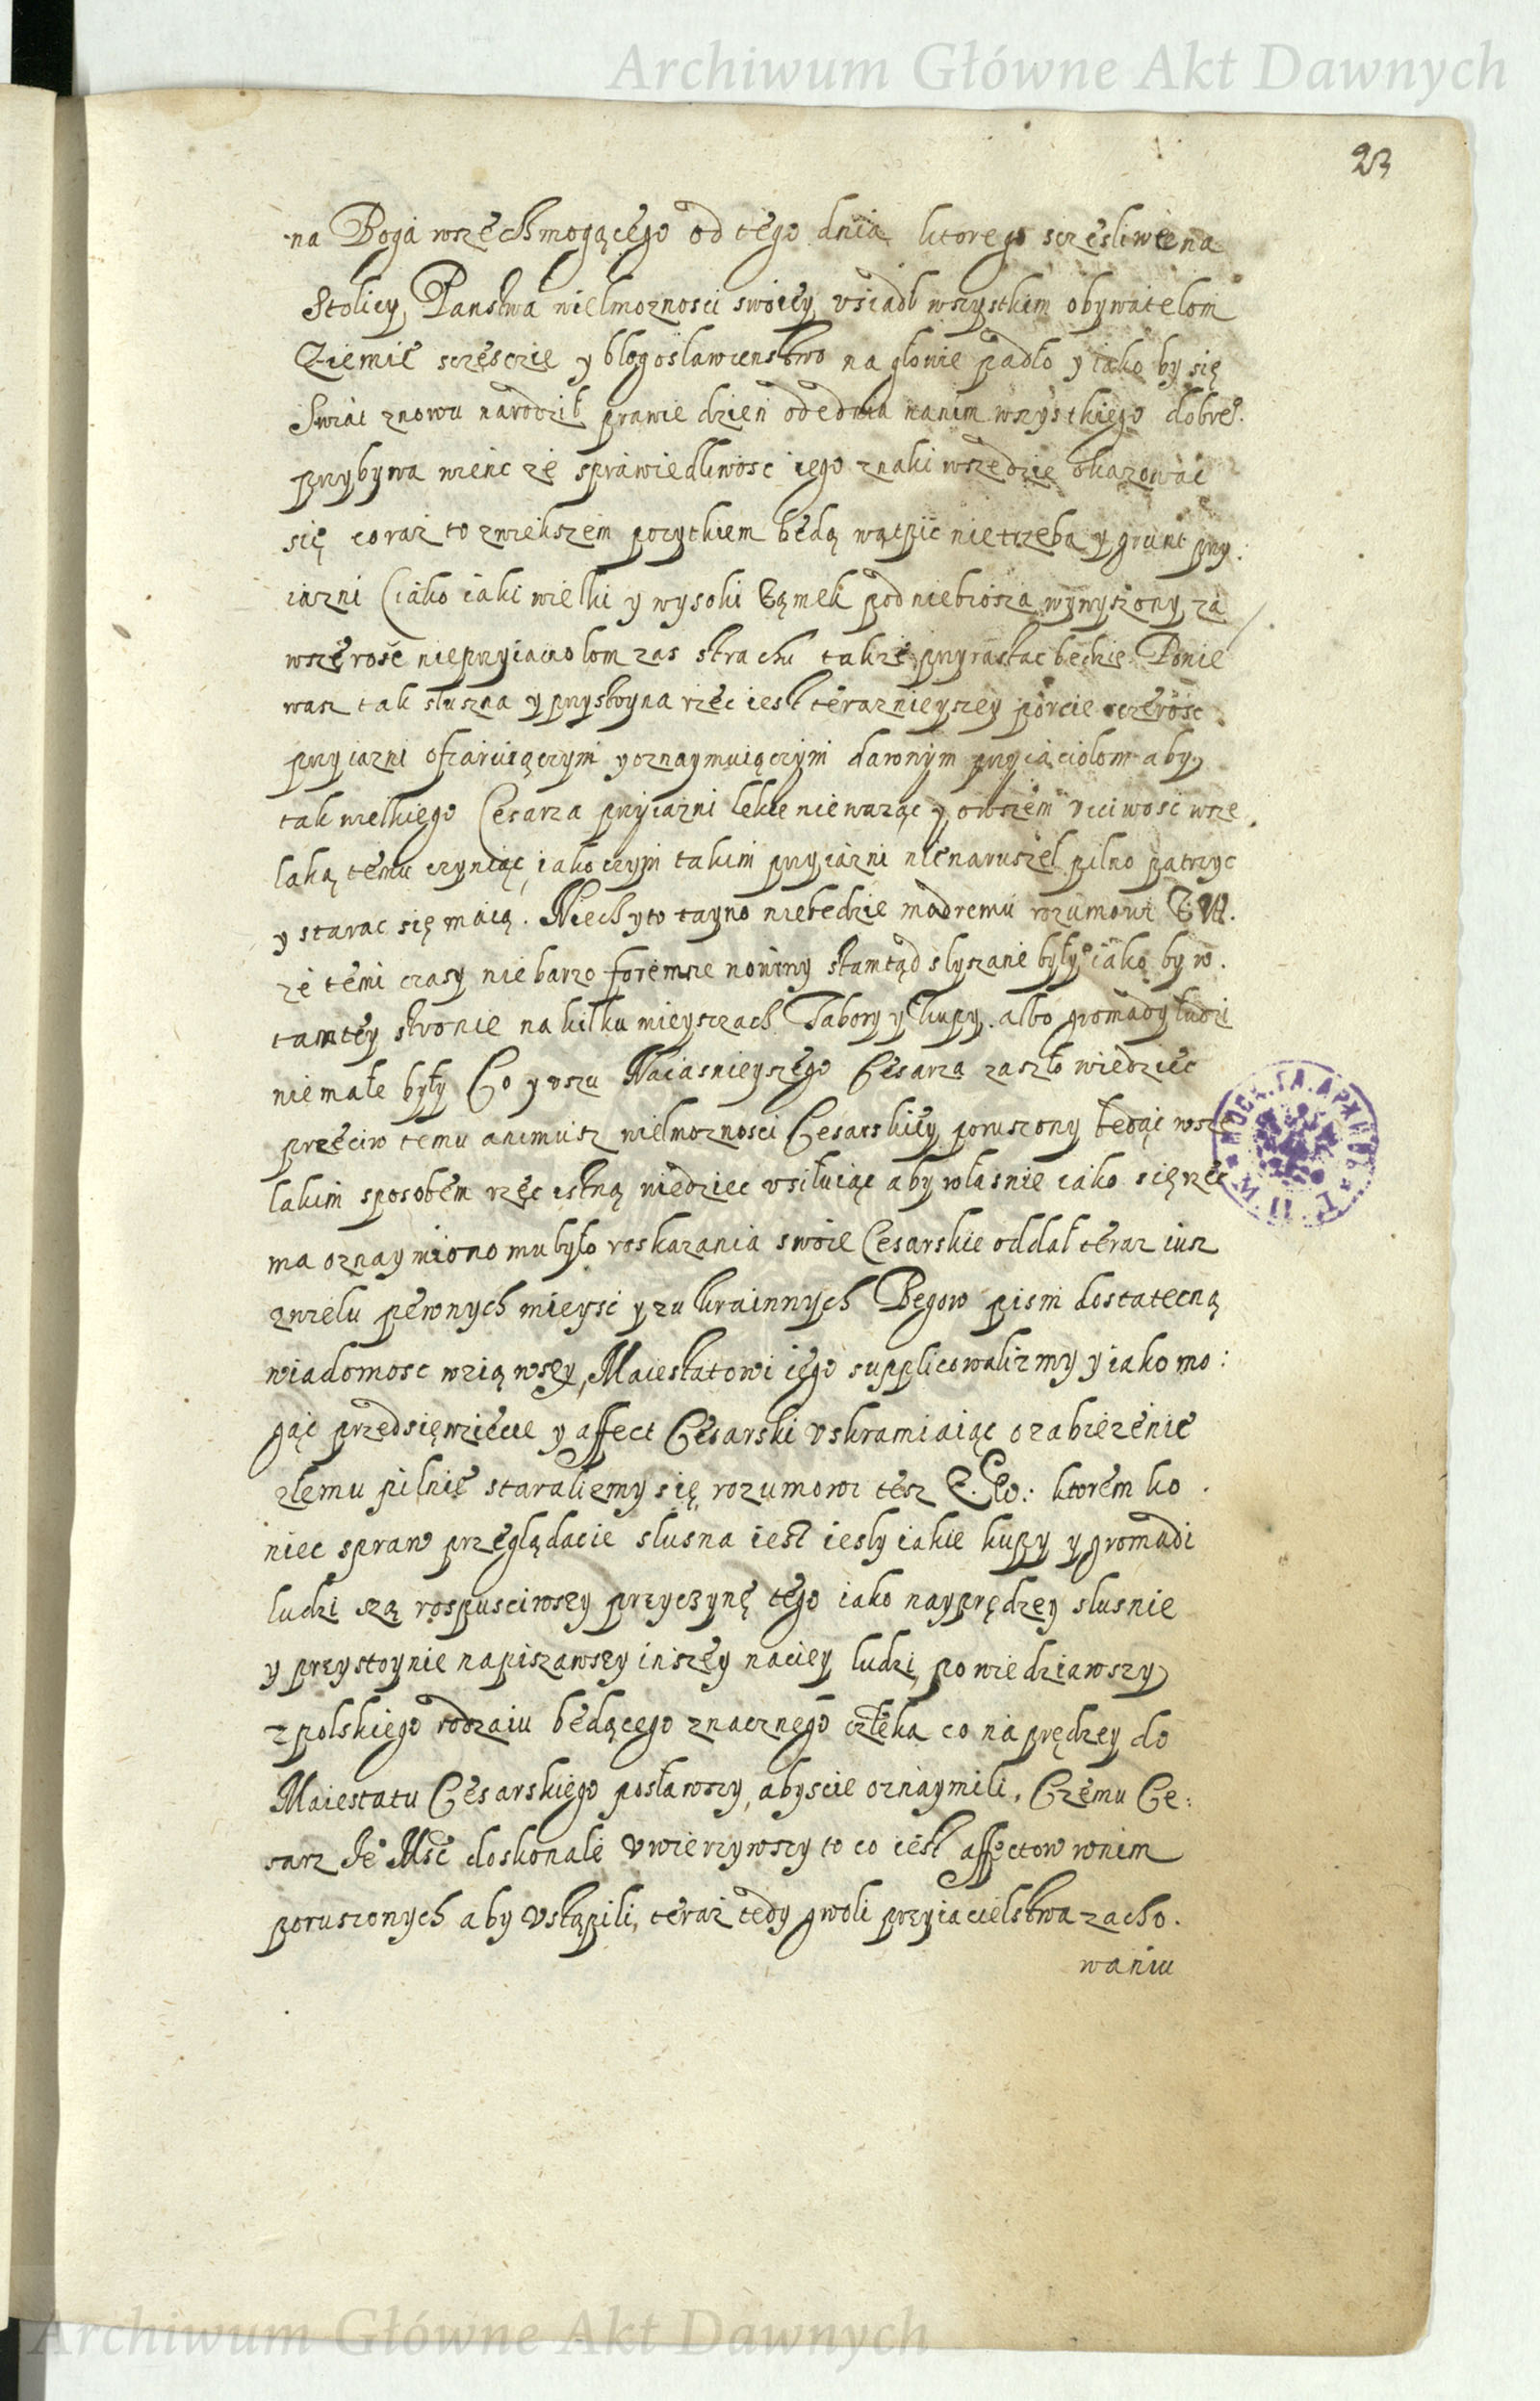 Archiwum Główne Akt Dawnych
23
na Boga wszechmogącego od tego dnia ktorego sczesliwie na
Stolicy Panstwa wielmoznosci swoiey vsiadł wszystkim obywatelom
Ziemie sczęscie y błogosławienstwo na głowie padło y iako by się
Swiat znowu narodził prawie dzien ode dnia nanim wszystkiego dobre°.
przybywa wienc ze sprawiedliwosc iego znaki wszedzie okazowac
się coraz to zwiekszem pozytkiem będą wątpic nietrzeba y grunt przy:
iazni (iako iaki wielki y wysoki Zamek pod niebiosza wywyszony za
wsze rosc nieprzyiaciolom zas strachu takze przyrastac bedzie Ponie
wasz tak słuszna y przystoyna rzec iest teraznieyszey porcie sczerosc
przyiazni ofiaruiączym y oznaymuiączym dawnym przyiaciolom aby
tak wielkiego Cesarza przyiazni lekce nie waząc y owszem vcciwosc wsze
laką temu czyniąc, iako czym takim przyiazni nienaruszel pilno patrzyc
y starac się maią. Niech y to tayno niebedzie mądremu rozumowi
ze temi czasy nie barzo foremne nowiny stamtąd słyszane były iako by w
tamtey stronie na kilku mieyszcach Tabory y kupy albo gromady ludzi
niemałe były Co y vszu Naiasnieyszego Cesarza zaszło wiedziec
przeciw temu animusz wielmoznosci Cesarskiey poruszony będąc wsze
lakim sposobem rzęc istną wiedziec vsiłuiąc aby własnie iako się rzec
ma oznaymiono mu było roskazania swoie Cesarskie oddał teraz iusz
zwielu pewnych mieysc y zukrainnych Begow pism dostateczną
wiadomosc wziąwszy, Maiestatowi iego supplicowalizmy y iako mo:
gąc przedsięwziecie y affect Cesarski vskramiaiąc o zabiezenie
złemu pilnie staralizmy się rozumowi tesz ktorem ko
niec spraw przeglądacie slusna iest iesly iakie kupy y gromadi
ludzi są rospusciwszy przyczynę tego iako nayprędzey slusnie
y przystoynie napisawszy inszey naciey ludzi, powiedziawszy
z polskiego rodzaiu będącego znacznego człeka co naprędzey do
Maiestatu Cesarskiego posławszy, abyscie oznaymili. Czemu Ce:
sarz Je° Msc doskonale vwierzywszy to co iest affectow wnim
poruszonych aby vstąpili, teraz tedy gwoli przyiacielstwa zacho.
waniu
Archiwum Główne Akt Dawnych